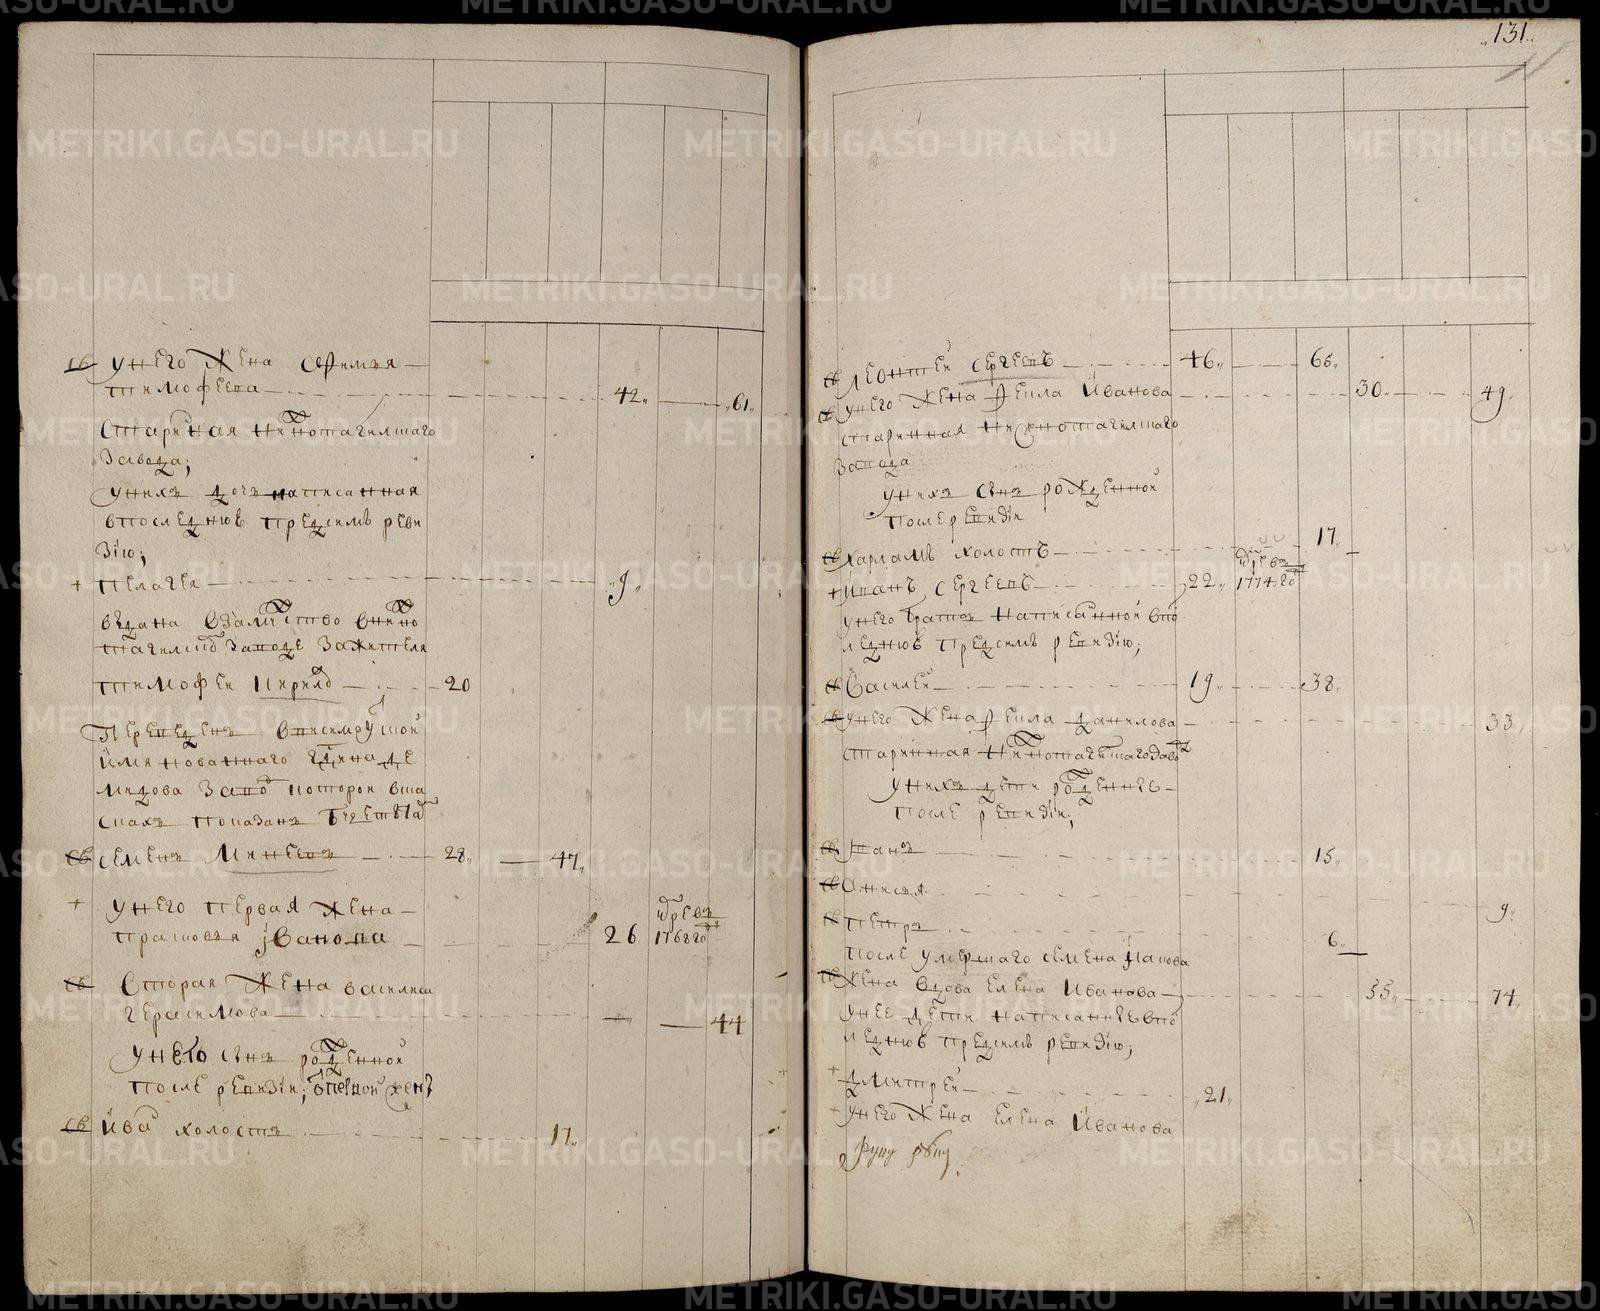 131
св у него жена Ефимья
тимофеева 42 61
старинная нижнотагилшаго
завода;
у нихъ дочь написанная
впоследнюю предсимъ реви
зiю;
+ пелагея 9
выдана взамужство внижно
тагилскомъ заводе зажителя
тимофея кирилова 20
переведенъ
имянованнаго Едина де
мидова заводъ которои вска
скахъ показанъ
св семенъ Минеевъ 28 47
+ у него первая жена
прасковья iванова 26 древ 1768 го
св вторая жена василиса
герасимова 44
у него сынъ рожденной
после ревизiи; отпервой жены
св иванъ холостъ 17
св леонтей сергеевъ 46 65
св у него жена фекла иванова 30 49
старинная нижнотагилшаго
завода
у нихъ сынъ рожденной
после ревизiи
св харламъ холостъ 17
+ иванъ сергеевъ 22 древ 1774 го
у него братъ написанной впо
следнюю предсимъ ревизiю;
св василей 19 38
св у него жена фекла данилова 33
старинная нижнотагилшаго завода
у нихъ дети рожденные
после ревизiи;
св иванъ 15
св анисья 9
св петръ 6
после умершаго семена
св жена вдова елена иванова 55 74
у нее дети написанные впо
следнюю предсимъ ревизiю;
+ дмитрей 21
+ у него жена елена иванова
руку
METRIKI.GASO-URAL.RU